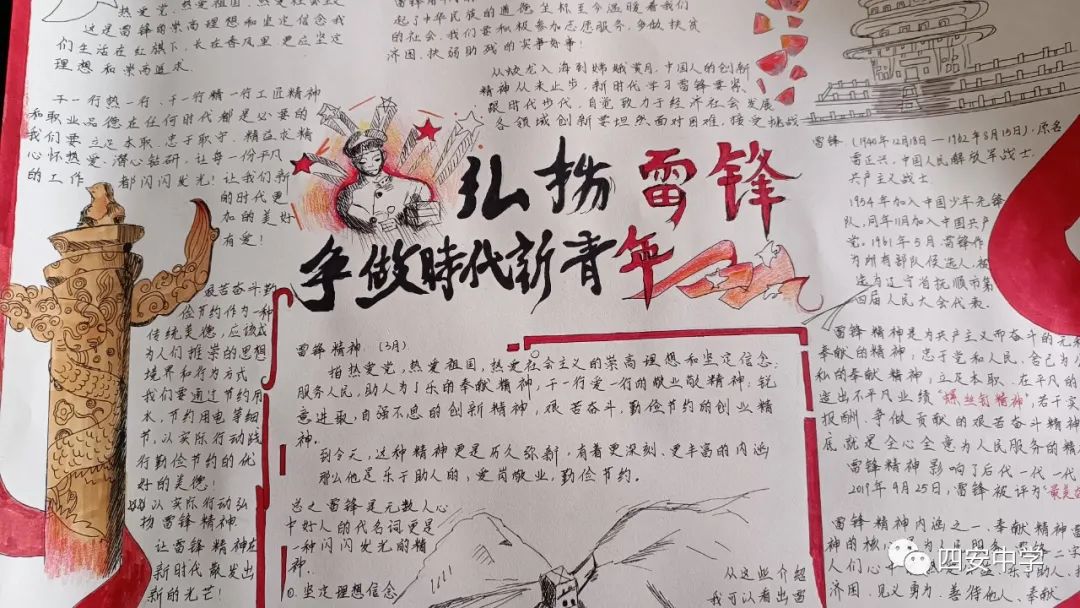 热爱党、热爱祖国、热爱社会主义
这是雷锋的崇高理想和坚定信念我
们生活在红旗下,长在春风里.更应坚定
理想和崇高追求.
起了中华民族的道德坐标至今温暖着我们
的社会.我们要积极参加志愿服务,多做扶贫
济困、扶弱助残的实事好事!
从蛟龙入海到嫦娥奔月.中国人的创新
精神从未止步,新时代学习雷锋要紧
跟时代步伐,自觉致力于经济社会发展
各领域创新要坦然面对困难,接受挑战
干一行热一行、干一行精一行工匠精神
和职业品德在任何时代都是必要的
我们要立足本职.忠于职守、精益求精
心怀热爱、潜心钻研,让每一份平凡
的工作 都闪闪发光!让我们新
的时代更
加的美好
有爱!
弘扬雷锋
争做時代新青年
雷锋(1940年12月18日—1962年8月15日),原名
雷正兴,中国人民解放军战士.
共产主义战士.
1954年加入中国少年先锋
队,同年11月加入中国共产
党。1961年5月,雷锋作
为所有部队候选人,被
选为辽宁省抚顺市第
四届人民大会代表.
艰苦奋斗勤
俭节约作为一种
传统美德,应该成
为人们推崇的思想
境界和行为方式
我们要通过节约用
水、节约用电等细
节,以实际行动践
行勤俭节约的优
好的美德!
以实际行动弘
扬雷锋精神
让雷锋精神在
新时代散发出
新的光芒!
雷锋精神 (3月)
指热爱党,热爱祖国,热爱社会主义的崇高理想和坚定信念.
服务人民,助人为了乐的奉献精神,干一行爱一行的敬业敬精神;锐
意进取,自强不息的创新精神,艰苦奋斗,勤俭节约的创业精
神.
到今天,这种精神更是历久弥新,有着更深刻、更丰富的内涵
那么他是乐于助人的,爱岗敬业,勤俭节约.
总之雷锋是无数人心
中好人的代名词更是
一种闪闪发光的精
神.
0.坚定理想信念
从这些介绍
我可以看出雷
雷锋精神是为共产主义而奋斗的无
奉献的精神;忠于党和人民、舍己为
私的奉献精神,立足本职、在平凡的
造出不平凡业绩"螺丝钉精神",苦干实
报酬、争做贡献的艰苦奋斗精神
底,就是全心全意为人民服务的精
雷锋精神影响了后代一代一代
2019年9月25日,雷锋被评为"最美
雷锋精神内涵之一、奉献精神
神的核
人们心
济困、见义勇为、善待他人、奉献
四安中学